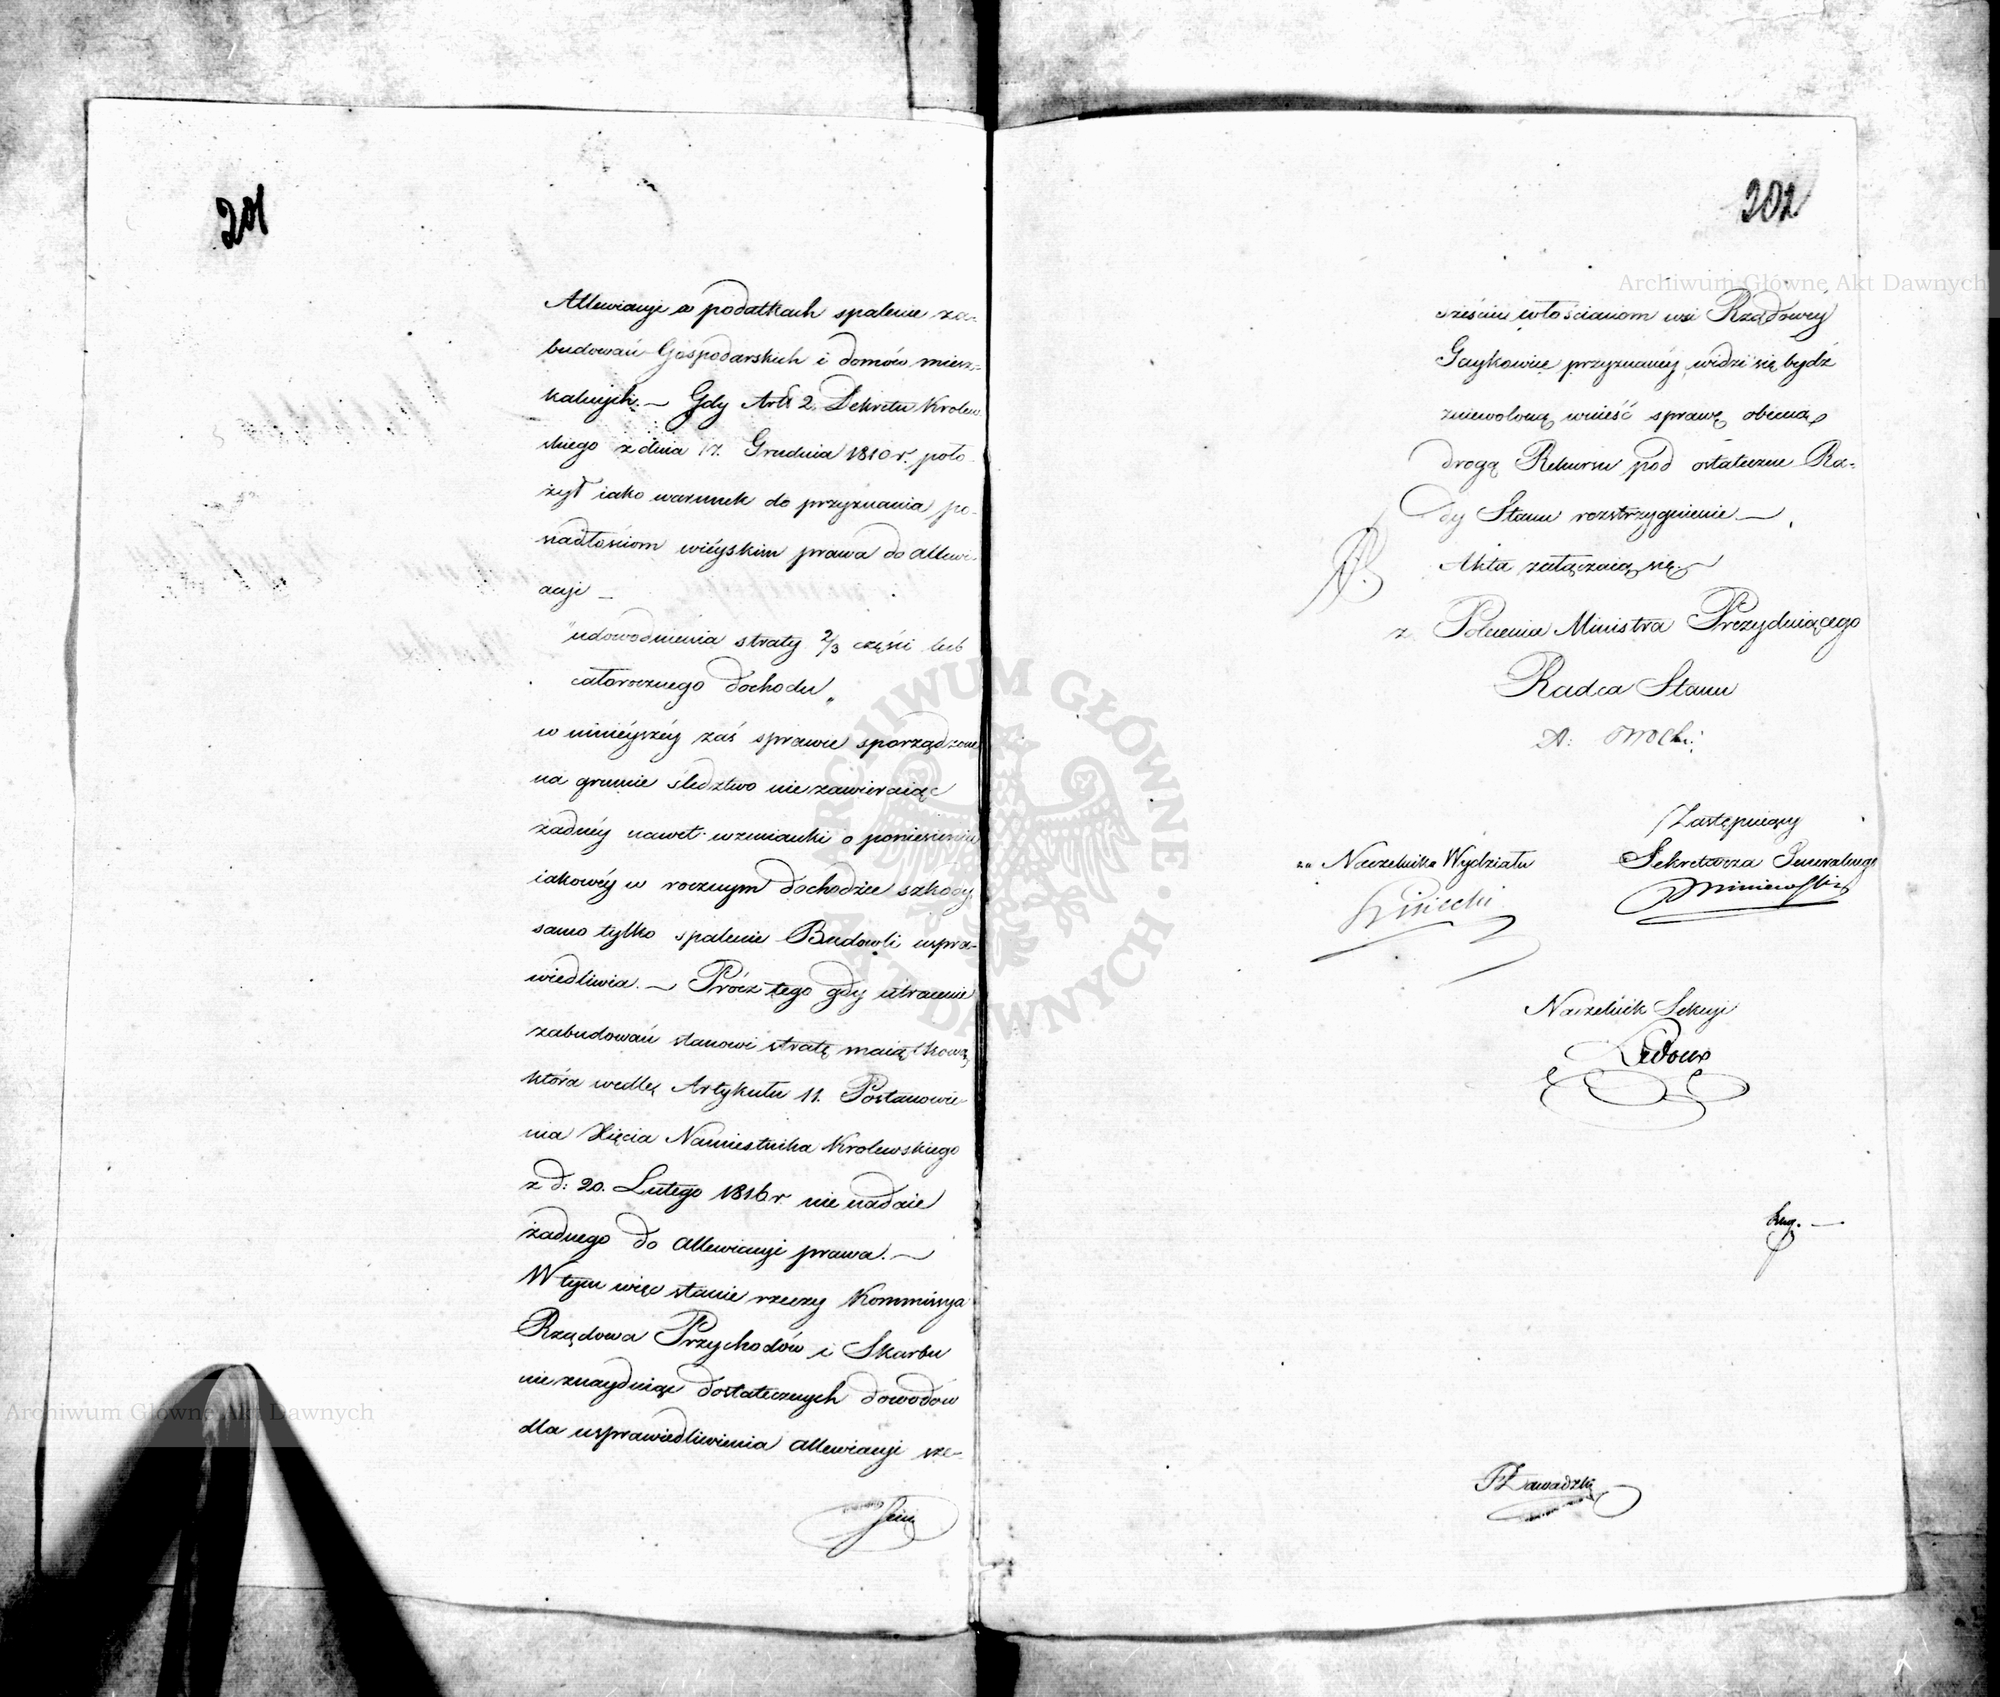 201
Allewiacyi w podatkach spalenie za-
budowań Gospodarskich i domów miesz-
kalnych. — Gdy Artł 2. Dekretu Krolew
skiego z dnia 17. Grudnia 1810 r. poło
żył iako warunek do przyznania po-
siadłościom wieyskim prawa do allewi-
acyi —
"udowodnienia straty 2/3 części lub
całorocznego dochodu„
w ninieyszéy zaś sprawie sporządzone
na gruncie śledztwo nie zawieraiąc
żadnéy nawet wzmianki o poniesieniu
iakowéy w rocznym dochodzie szkody,
samo tylko spalenie Budowli uspra-
wiedliwia. — Prócz tego gdy utracenie
zabudowań stanowi stratę maiątkową,
która wedle Artykułu 11. Postanowie
nia Xięcia Namiestnika Krolewskiego
z d: 20. Lutego 1816 r. nie nadaie
żadnego do allewiacyi prawa. —
W tym więc stanie rzeczy Kommissya
Rządowa Przychodów i Skarbu
nie znayduiąc dostatecznych dowodów
dla usprawiedliwienia allewiacyi sze-
202
sześciu włościanom wsi Rządowéy
Gaykowice przyznanéy, widzi się bydź
zniewoloną wnieść sprawę obecną
drogą Rekursu pod ostateczne Ra-
dy Stanu rozstrzygnienie —
Akta załączaią się. —
z Polecenia Ministra Prezyduiącego
Radca Stanu
Zastępuiący
za Naczelnika Wydziału
Sekretarza Generalnego
Naczelnik Sekcyi
Ledoux
Zawadzki
Archiwum Główne Akt Dawnych
Archiwum Główne Akt Dawnych
ARCHIWUM GŁÓWNE AKT DAWNYCH